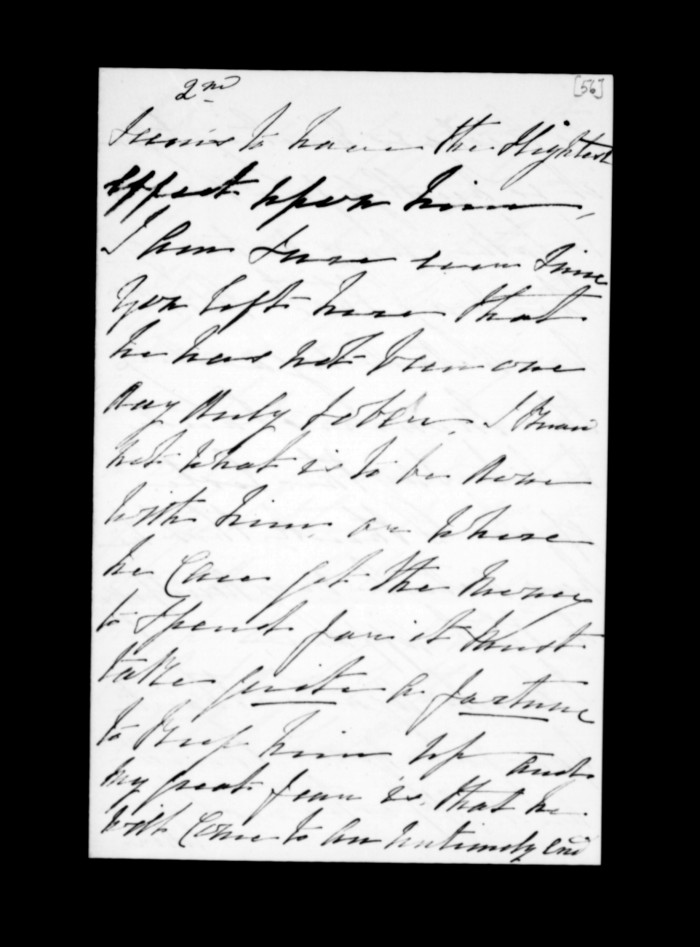 2nd
[56]
seems to have the slightest
effect upon him,
I am sure ever since
you left here that
he has not been one
day only sober. I know
not what is to be done
with him or where
he can get the money
to spend for it must
take quite a fortune
to keep him up and
my great fear is that he
will come to an untimely end